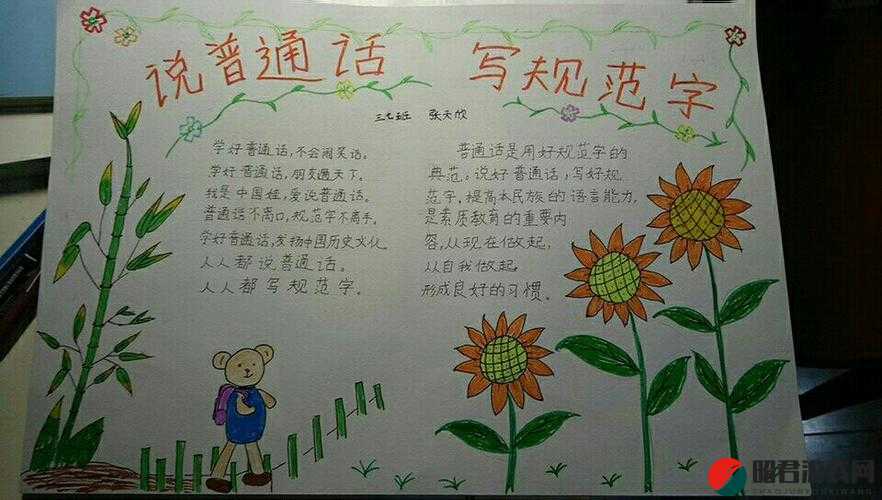 说普通话 写规范字
三七班 张天欣
学好普通话,不会闹笑话。
学好普通话,朋友遍天下。
我是中国娃,爱说普通话。
普通话不离口,规范字不离手。
学好普通话,发扬中国历史文化
人人都说普通话。
人人都写规范字。
普通话是用好规范字的
典范,说好普通话,写好规
范字,提高本民族的语言能力,
是素质教育的重要内
容,从现在做起,
从自我做起,
形成良好的习惯。
昭君游戏网